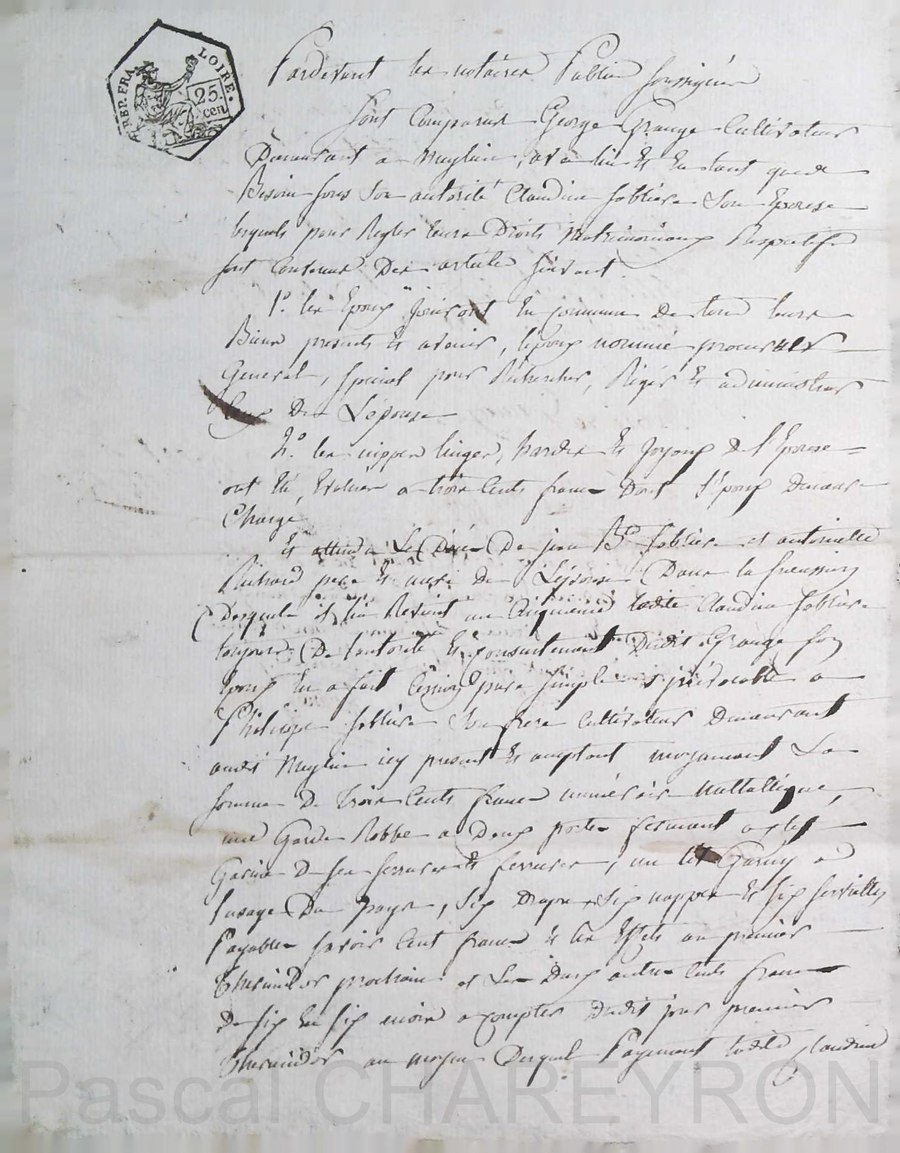 REP. FRA. LOIRE.
25. cen
Pardevant les notaires Publics soussignés
Sont Comparus George Grange Cultivateur
Demeurant a et en tant que de
Besoin sous son autorité Claudine Joblier Son Epouse
lesquels pour Regler leurs Droits Matrimoniaux Respectifs
sont Convenus Des articles suivant
1º les Epoux Jouiront en commun De tous leurs
Biens presents et avenir, l'époux nommé procureur
General, special pour Rechercher, Régir et administrer
Ceux De L'épouse
2º. les nippes linges, hardes et Joyaux de l'Epouse
ont été, Evalués a trois Cents francs Dont l'époux Demeure
Chargé
Et attendu Le Décès De jean Bte Joblier et antoinette
pere et mere De L'épouse Dans la succession
Desquels il lui Revient un Cinquieme ladite Claudine Joblier
toujours De l'autorité et consentement Dudit Grange son
Epoux en a fait Cession pure simple et irrévocable a
Philippe Joblier Son frere Cultivateur Demeurant
audit icy present et acceptant moyennant La
somme De Trois Cents francs numéraire Mettallique,
une Garde Robbe a Deux portes fermant a clef
Garnie De ses serrures et ferrures, un lit Garny a
l'usage Du Pays, six Draps, six nappes et six serviettes
Payable savoir Cent francs et les Effets au premier
Thermidor prochain et Les Deux autres Cents francs
De six en six mois a compter Dudit jour premier
Thermidor au moyen Duquel Payement ladite Claudine
Pascal CHAREYRON